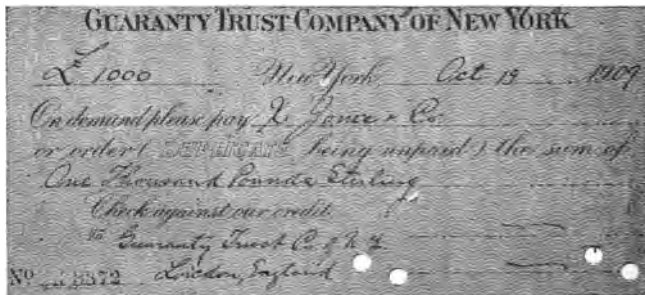 GUARANTY TRUST COMPANY OF NEW YORK
£ 1000 New York, Oct 19 1909
On demand please pay X Jones & Co.
or order ( DUPLICATE being unpaid ) the sum of
One Thousand Pounds Sterling
Check against our credit.
To Guaranty Trust Co. of N.Y.
No. London, England